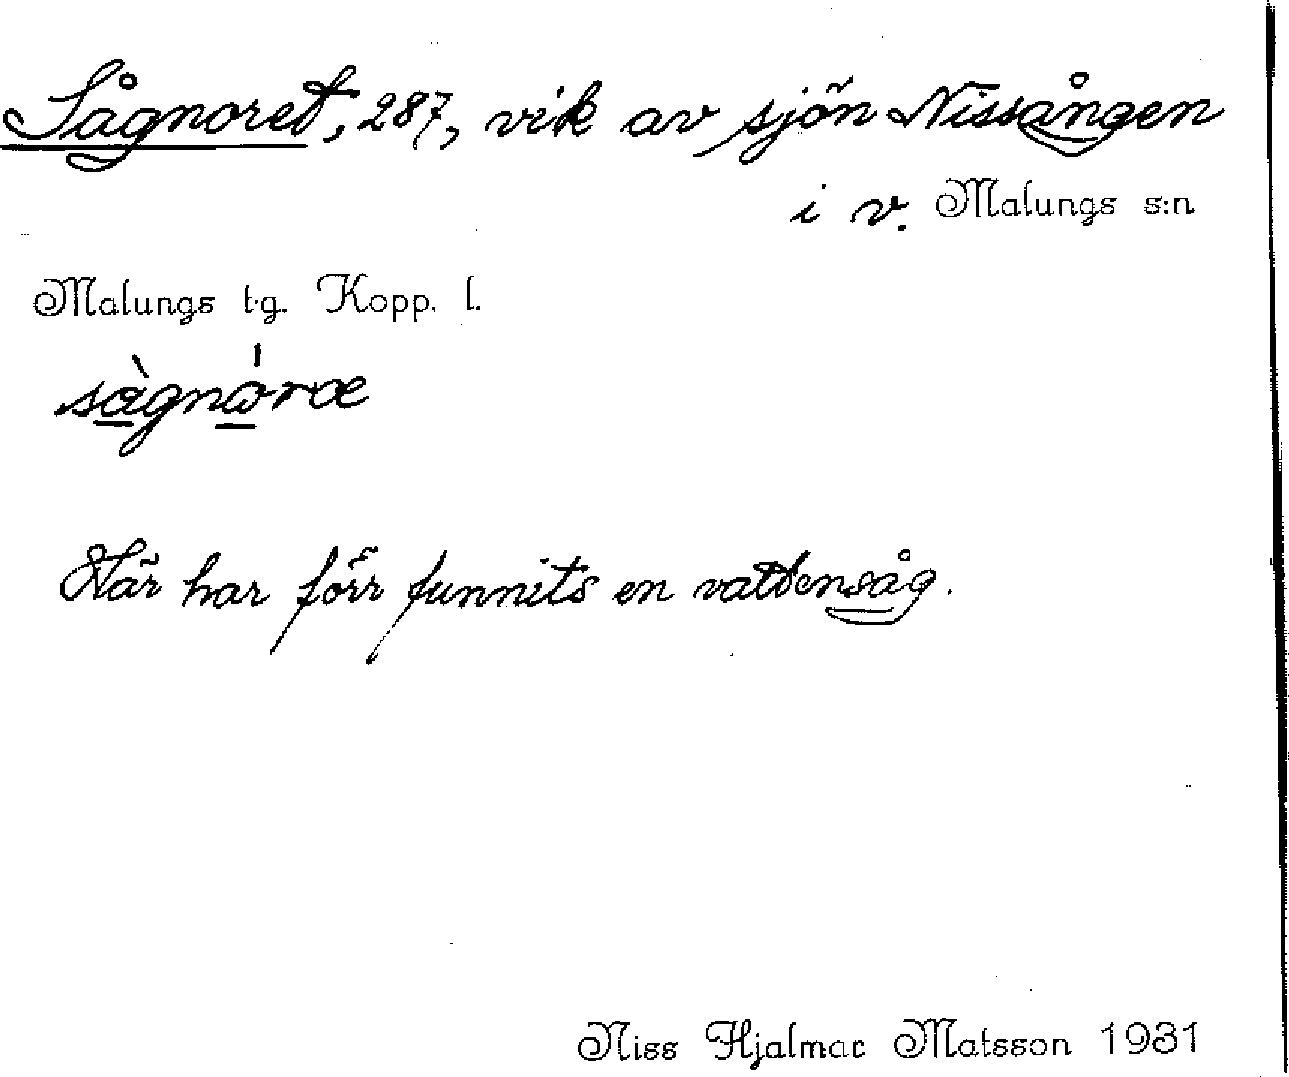 Sågnoret, 287, vik av sjön Nissången
i v. Malungs s:n
Malungs t.g. Kopp. l.
sàgnóræ
Här har förr funnits en vattensåg.
Niss Hjalmar Matsson 1931